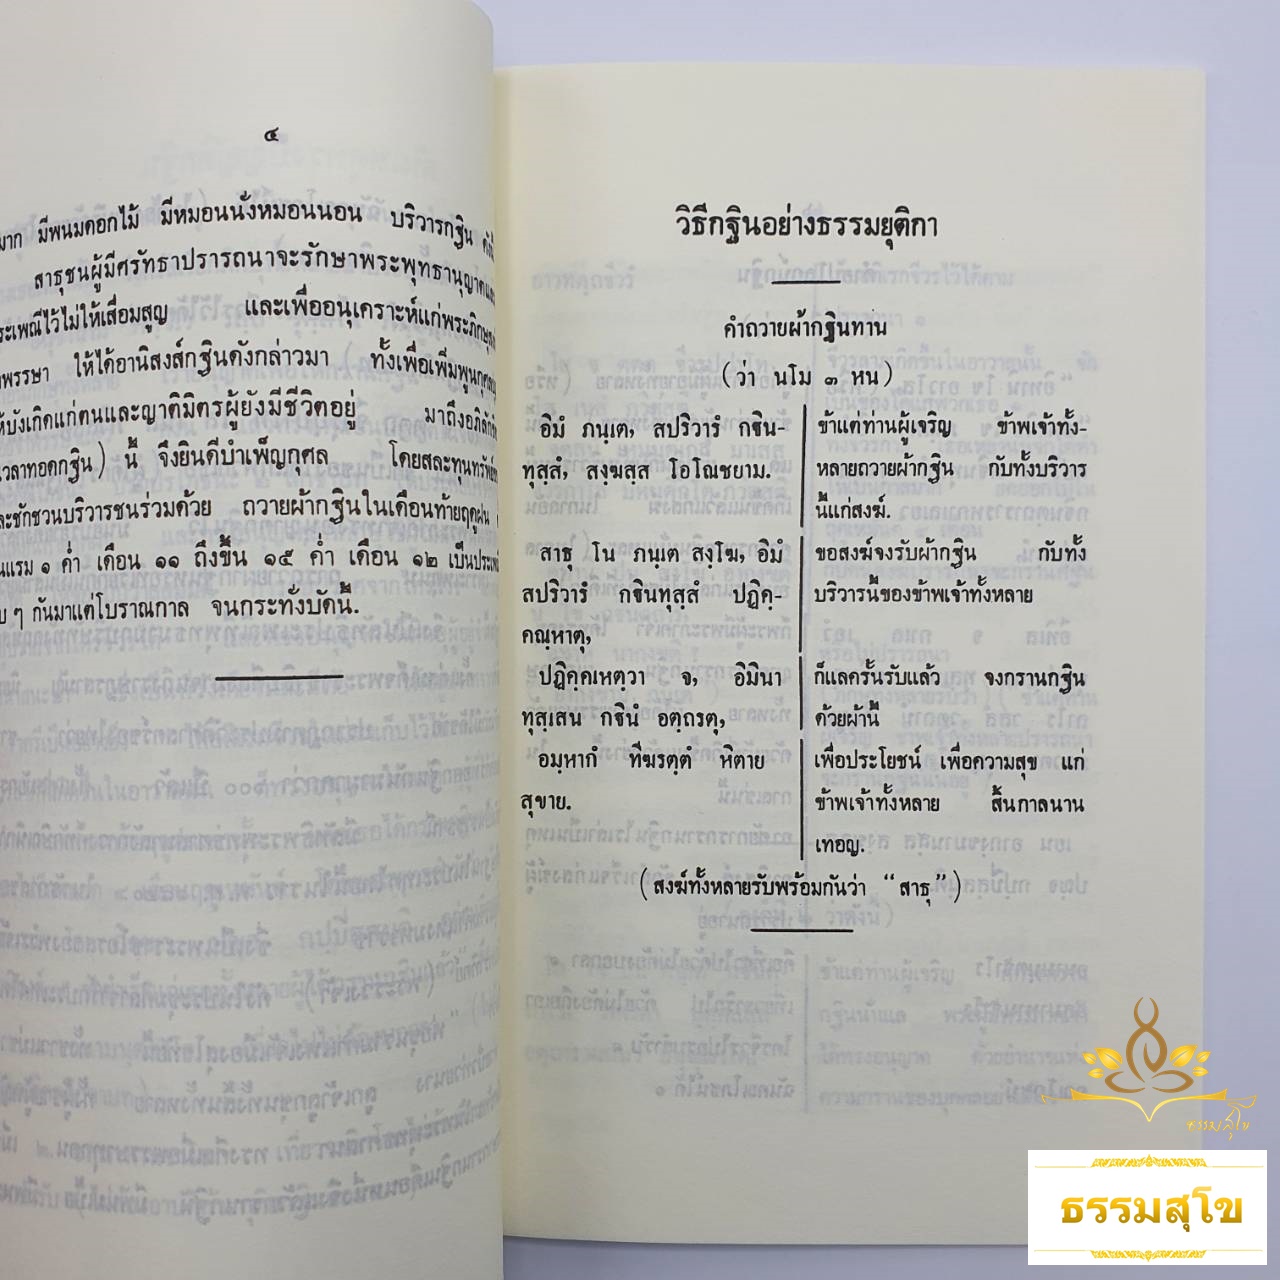 ๔
มาก มีพนมดอกไม้ มีหมอนนั่งหมอนนอน บริวารกฐิน
สาธุชนผู้มีศรัทธาปรารถนาจะรักษาพระพุทธานุญาตและ
ระเพณีไว้ไม่ให้เสื่อมสูญ และเพื่ออนุเคราะห์แก่พระภิกษุ
พรรษา ให้ได้อานิสงส์กฐินดังกล่าวมา ทั้งเพื่อเพิ่มพูนกุศล
ห้บังเกิดแก่ตนและญาติมิตรผู้ยังมีชีวิตอยู่ มาถึงอภิลักขิ
เวลาทอดกฐิน) นี้ จึงยินดีบำเพ็ญกุศล โดยสละทุนทรัพย์
ละชักชวนบริวารชนร่วมด้วย ถวายผ้ากฐินในเดือนท้ายฤดูฝน
นแรม ๑ ค่ำ เดือน ๑๑ ถึงขึ้น ๑๕ ค่ำ เดือน ๑๒ เป็นประเพ
บ ๆ กันมาแต่โบราณกาล จนกระทั่งบัดนี้.
วิธีกฐินอย่างธรรมยุติกา
คำถวายผ้ากฐินทาน
(ว่า นโม ๓ หน)
อิมํ ภนฺเต, สปริวารํ กฐิน-
ทุสฺสํ, สงฺฆสฺส โอโณชยาม.
สาธุ โน ภนฺเต สงฺโฆ, อิมํ
สปริวารํ กฐินทุสฺสํ ปฏิคฺ-
คณฺหาตุ,
ปฏิคฺคเหตฺวา จ, อิมินา
ทุสฺเสน กฐินํ อตฺถรตุ,
อมฺหากํ ทีฆรตฺตํ หิตาย
สุขาย.
ข้าแต่ท่านผู้เจริญ ข้าพเจ้าทั้ง-
หลายถวายผ้ากฐิน กับทั้งบริวาร
นี้แก่สงฆ์.
ขอสงฆ์จงรับผ้ากฐิน กับทั้ง
บริวารนี้ของข้าพเจ้าทั้งหลาย
ก็แลครั้นรับแล้ว จงกรานกฐิน
ด้วยผ้านี้
เพื่อประโยชน์ เพื่อความสุข แก่
ข้าพเจ้าทั้งหลาย สิ้นกาลนาน
เทอญ.
(สงฆ์ทั้งหลายรับพร้อมกันว่า “สาธุ”)
ธรรมสุโข
ธรรมสุโข